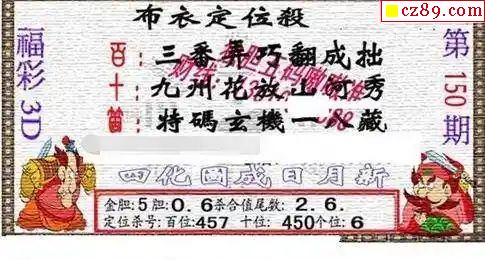 cz89.com
布衣定位殺
福彩3D
第150期
百：三番弄巧翻成拙
十：九州花放山河秀
笛：特碼玄機一八藏
四化國成日月新
金胆:5胆0.6杀合值尾数:2.6.
定位杀号:百位:457 十位:450个位:6